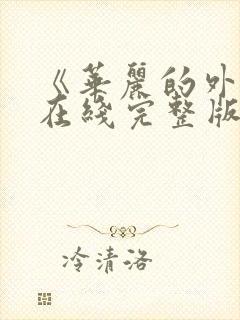 《華麗的外
在綫完整版
冷清洛